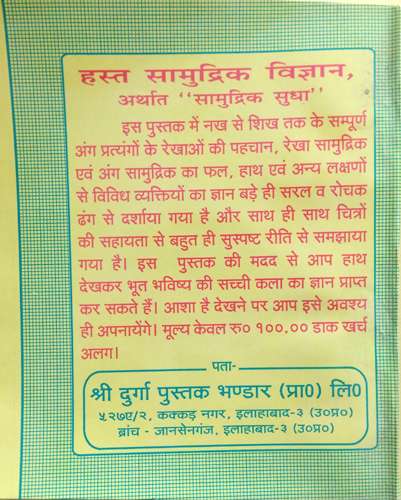 हस्त सामुद्रिक विज्ञान,
अर्थात ‘‘सामुद्रिक सुधा’’
इस पुस्तक में नख से शिख तक के सम्पूर्ण
अंग प्रत्यंगों के रेखाओं की पहचान, रेखा सामुद्रिक
एवं अंग सामुद्रिक का फल, हाथ एवं अन्य लक्षणों
से विविध व्यक्तियों का ज्ञान बड़े ही सरल व रोचक
ढंग से दर्शाया गया है और साथ ही साथ चित्रों
की सहायता से बहुत ही सुस्पष्ट रीति से समझाया
गया है। इस पुस्तक की मदद से आप हाथ
देखकर भूत भविष्य की सच्ची कला का ज्ञान प्राप्त
कर सकते हैं। आशा है देखने पर आप इसे अवश्य
ही अपनायेंगे। मूल्य केवल रु० १००.०० डाक खर्च
अलग।
पता-
श्री दुर्गा पुस्तक भण्डार (प्रा0) लि0
५२७ए/२, कक्कड़ नगर, इलाहाबाद-३ (उ०प्र०)
ब्रांच - जानसेनगंज, इलाहाबाद-३ (उ०प्र०)